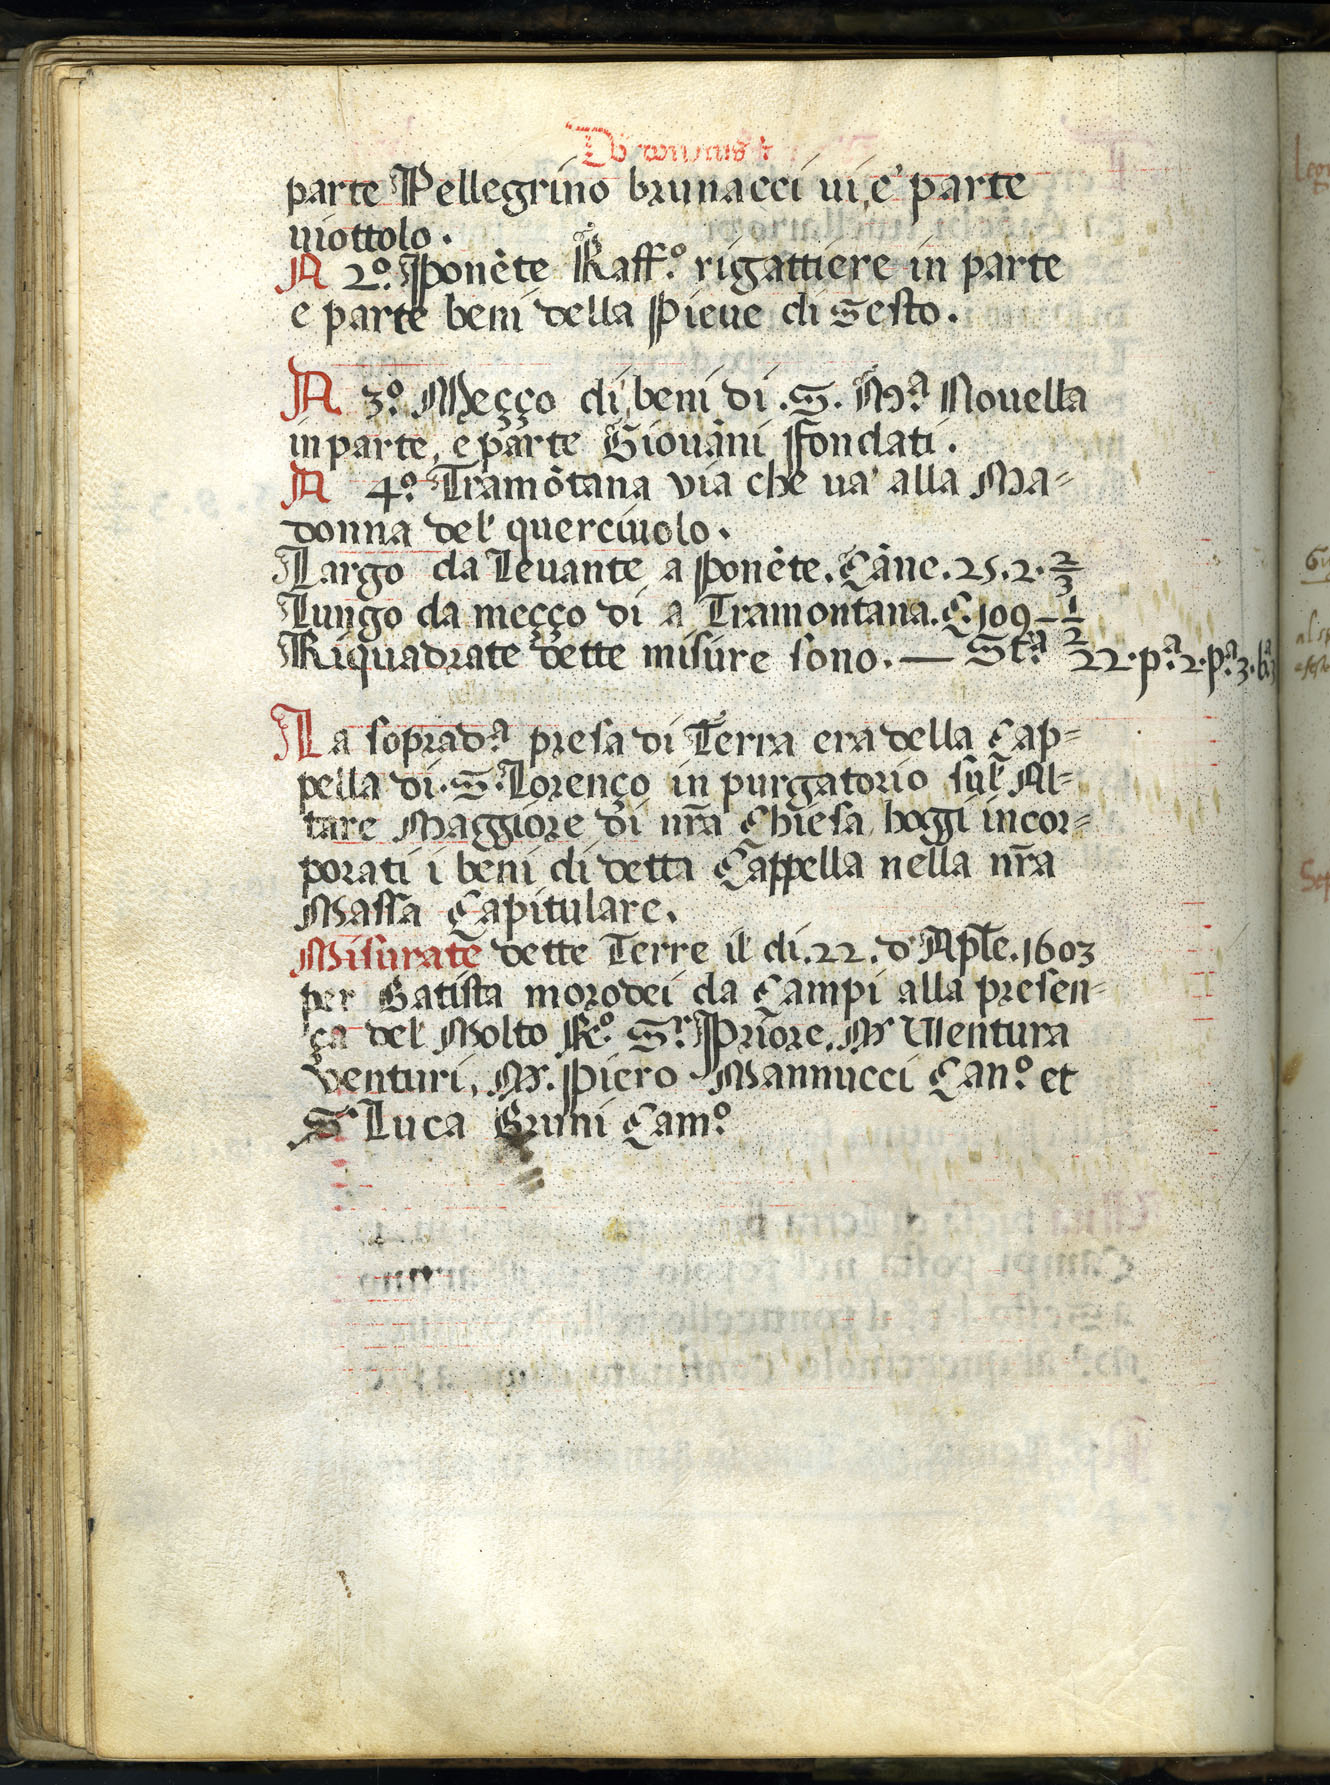 parte Pellegrino brunacci ui, e' parte
uiottolo.
A 2º. Ponēte Raff.º rigattiere in parte
e parte beni della Pieue di Sesto.
A 3º. Meçço di, beni di .S. M.ª Nouella
in parte, e parte Giouāni Fondati.
A 4º. Tramōtana via che ua' alla Ma-
donna del querciuolo.
Largo da Leuante a Ponēte. Cāne. 25. 2. 2/3
Lungo da meçço di a Tramontana. C. 109 - 1/2
Riquadrate dette misure sono. — St.ª 22. p.ª 2. p.ª 3. b.ª
La soprad.ª presa di Terra era della Cap-
pella di .S. Lorenço in purgatorio sul Al-
tare Maggiore di nr̄a Chiesa, hoggi incor-
porati i beni di detta Cappella nella nr̄a
Massa Capitulare.
Misurate dette Terre il di .22. d' Ap̄le. 1603
per Batista morodei da Campi alla presen-
ça del Molto R.º S.r Priore, M.r Uentura
venturi, M.r Piero Mannucci Can.º et
S.r Luca Bruni Cam.º